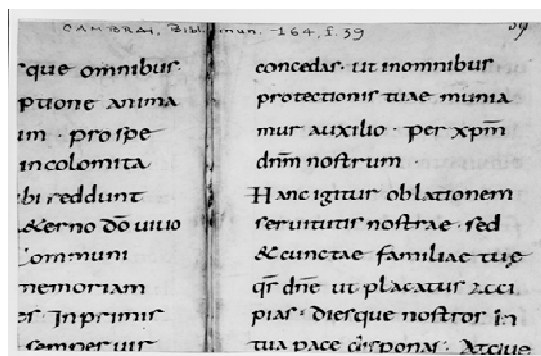 CAMBRAI, Bibl. mun. 164, f. 39
39
que omnibus
ptione anima
um · prospe
incolomita
bi reddunt
&erno dō uiuo
Communi
memoriam
es Inprimis
semper uir
concedas · ut inomnibus
protectionis tuae munia
mur auxilio · per xpm̄
dnm̄ nostrum ·
Hanc igitur oblationem
seruitutis nostrae · sed
&cunctae familiae tuę
qs̄ dnē ut placatus acci
pias · diesque nostros in
tua pace disponas · Atque